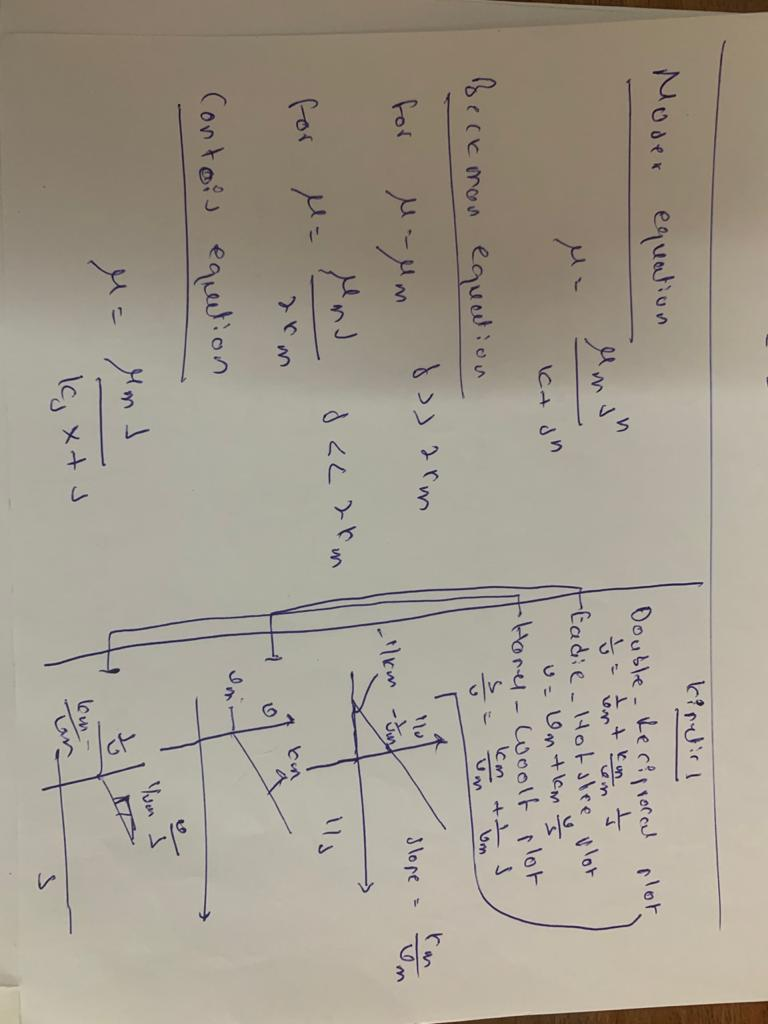 Moser equation
μ = μm sⁿ / k + sⁿ
Beckman equation
for μ = μm s >> 2km
for μ = μm s / 2km s << 2km
Contois equation
μ = μm s / ks x + s
kinetics
Double-Reciprocal plot
1/v = 1/vm + km/vm 1/s
Eadie-Hofstee plot
v = vm + km v/s
Hanes-Woolf plot
s/v = km/vm + 1/vm s
slope = km/vm
1/v
1/vm
-1/km
1/s
v
km
vm
v/s
1/vm
s
km/vm
s